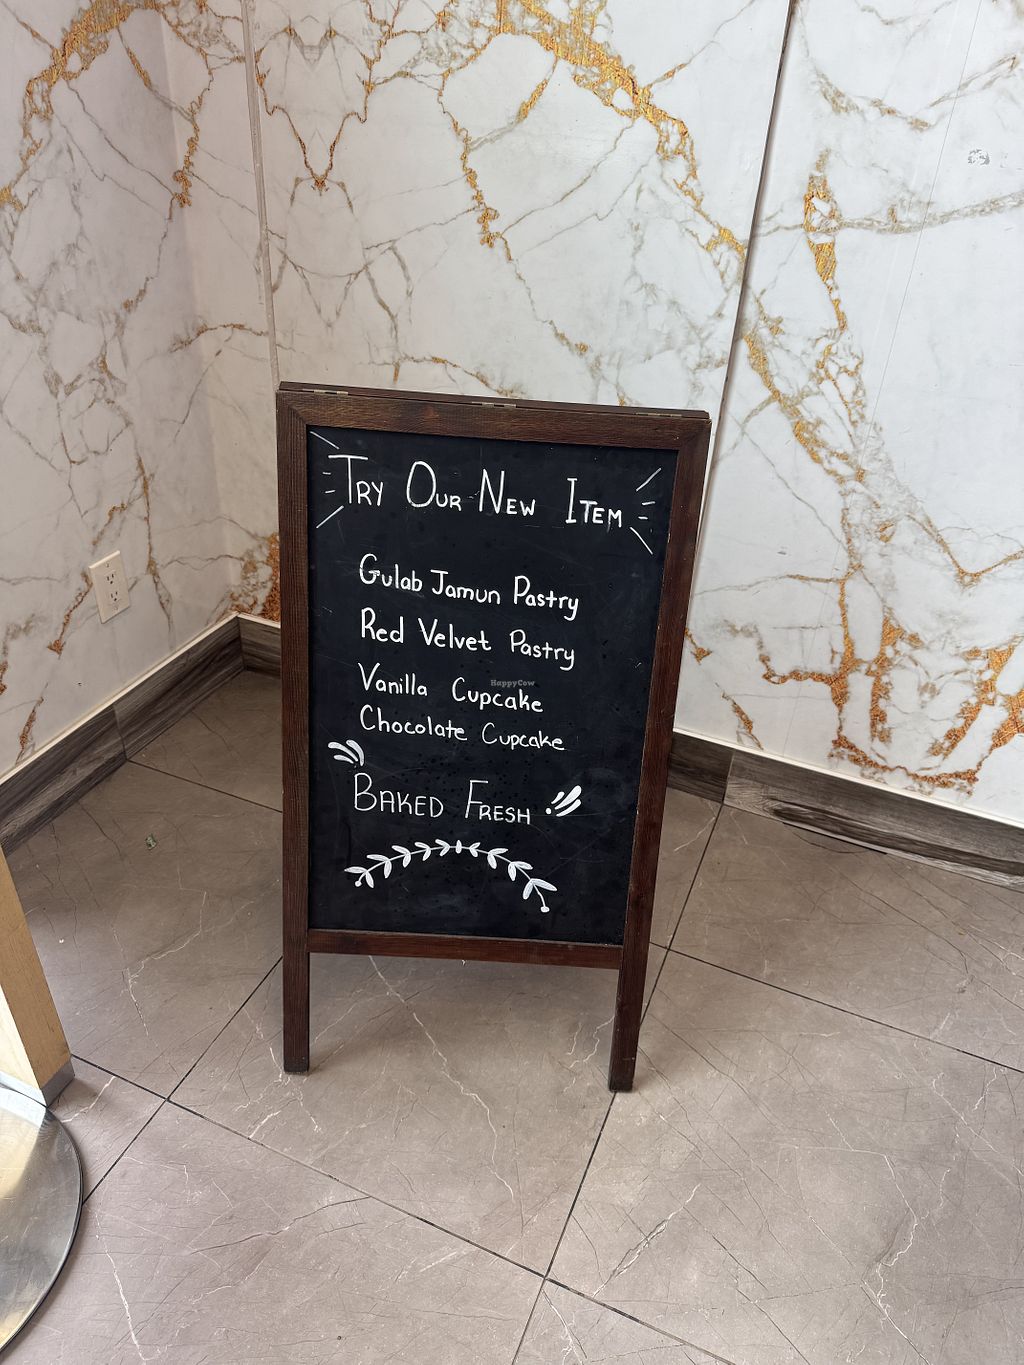 Try Our New Item
Gulab Jamun Pastry
Red Velvet Pastry
HappyCow
Vanilla Cupcake
Chocolate Cupcake
Baked Fresh